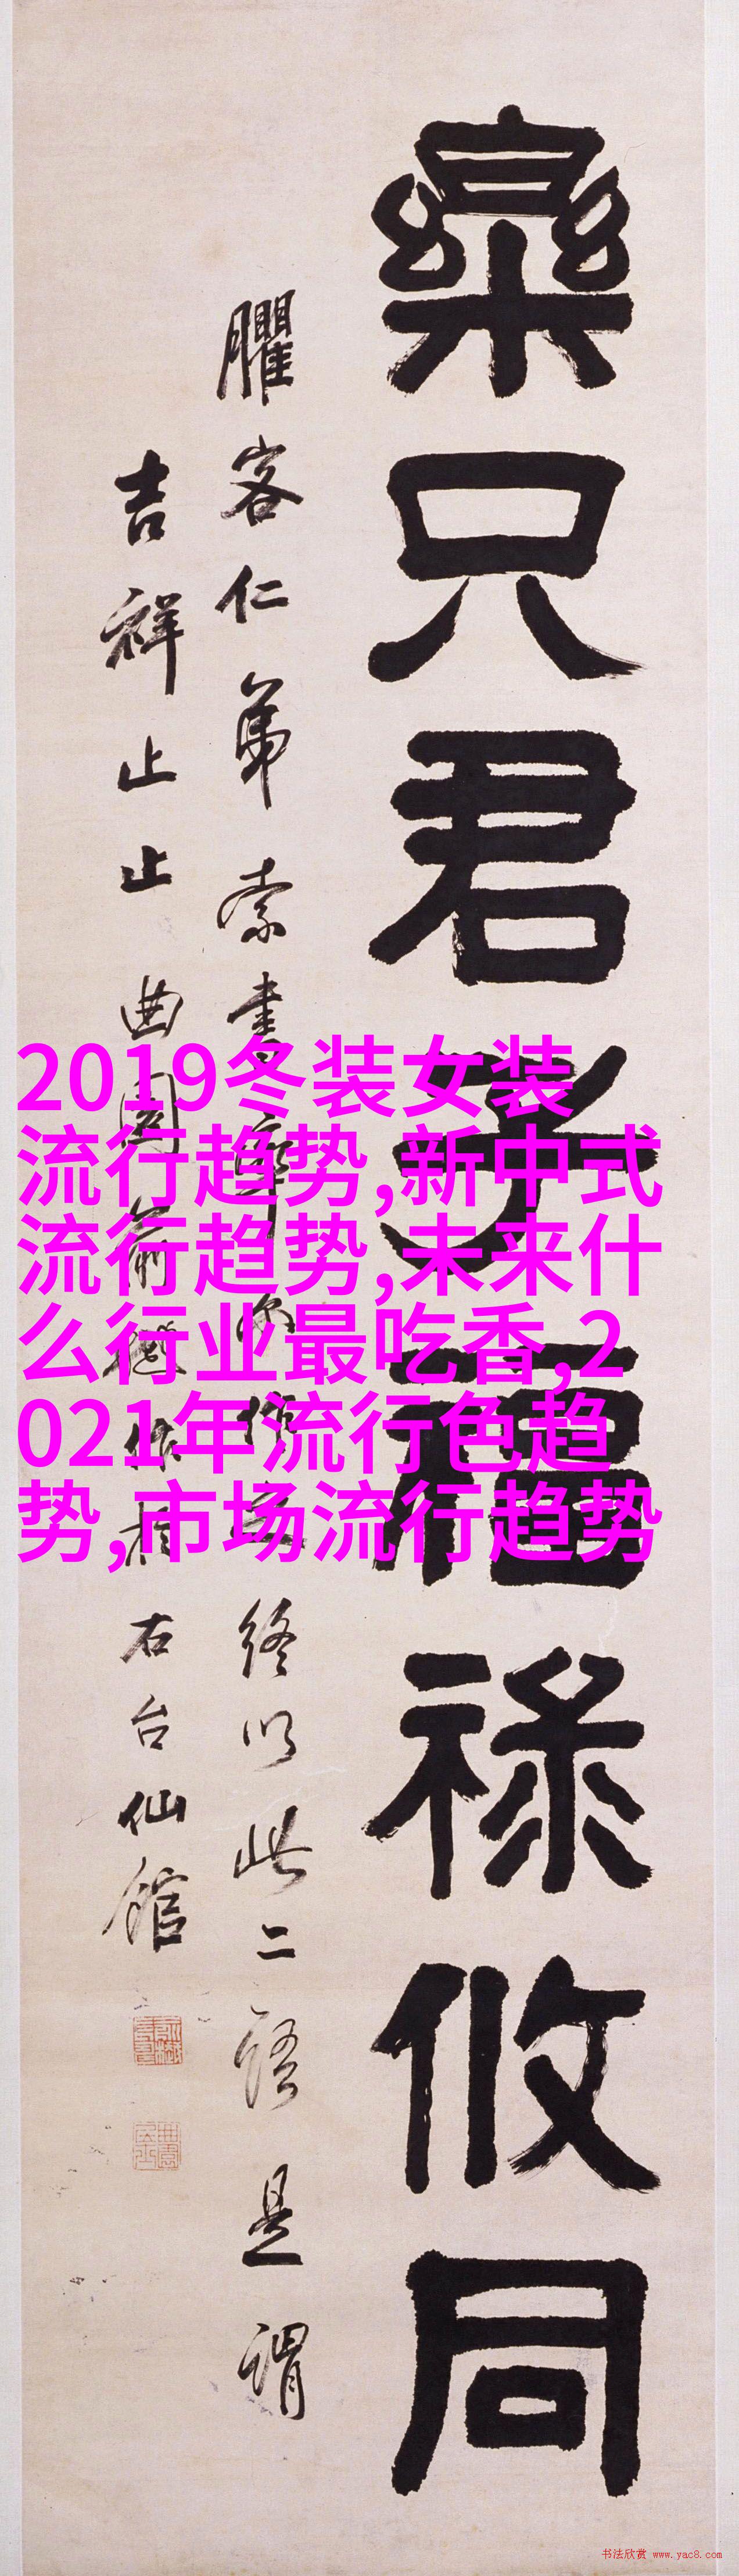 樂只君子福祿攸同
臞客仁弟索書
終以此二語是謂
吉祥止止曲園
右台仙館
2019冬装女装
流行趋势,新中式
流行趋势,未来什
么行业最吃香,2
021年流行色趋
势,市场流行趋势
书法欣赏 www.yac8.com